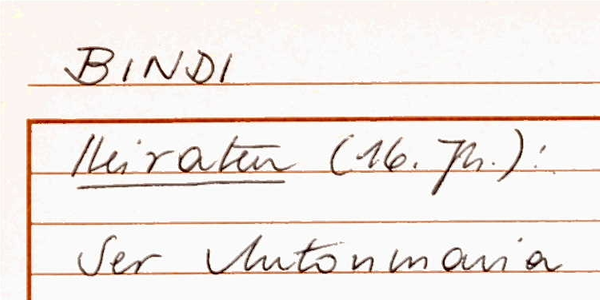 BINDI
Heiraten (16. Jh.):
Ser Antonmaria